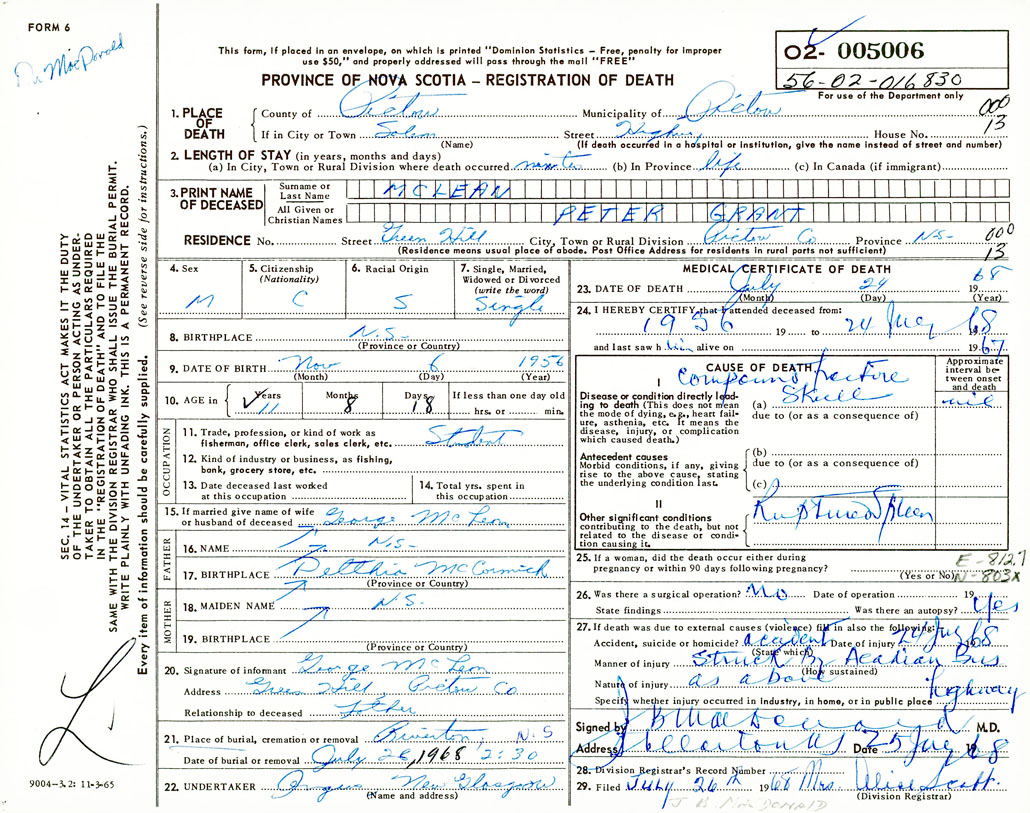 FORM 6
Dr. MacDonald
This form, if placed in an envelope, on which is printed "Dominion Statistics – Free, penalty for improper
use $50," and properly addressed will pass through the mail "FREE"
PROVINCE OF NOVA SCOTIA – REGISTRATION OF DEATH
02- 005006
56-02-016830
For use of the Department only
000
13
1. PLACE OF DEATH
County of Pictou Municipality of Pictou
If in City or Town Salem Street Highway House No.
(Name) (If death occurred in a hospital or institution, give the name instead of street and number)
2. LENGTH OF STAY (in years, months and days)
(a) In City, Town or Rural Division where death occurred minutes (b) In Province life (c) In Canada (if immigrant)
3. PRINT NAME OF DECEASED
Surname or Last Name MCLEAN
All Given or Christian Names PETER GRANT
RESIDENCE No. Street Green Hill City, Town or Rural Division Pictou Co Province N.S-
(Residence means usual place of abode. Post Office Address for residents in rural parts not sufficient)
000
13
4. Sex
M
5. Citizenship
(Nationality)
C
6. Racial Origin
S
7. Single, Married,
Widowed or Divorced
(write the word)
Single
8. BIRTHPLACE N.S-
(Province or Country)
9. DATE OF BIRTH Nov 6 1956
(Month) (Day) (Year)
10. AGE in Years Months Days If less than one day old
11 8 18 hrs. or min.
OCCUPATION
11. Trade, profession, or kind of work as
fisherman, office clerk, sales clerk, etc. Student
12. Kind of industry or business, as fishing,
bank, grocery store, etc.
13. Date deceased last worked
at this occupation
14. Total yrs. spent in
this occupation
15. If married give name of wife
or husband of deceased George McLean
FATHER
16. NAME N.S-
17. BIRTHPLACE McCormick
(Province or Country)
MOTHER
18. MAIDEN NAME N.S-
19. BIRTHPLACE
(Province or Country)
20. Signature of informant George McLean
Address Green Hill, Pictou Co
Relationship to deceased Father
21. Place of burial, cremation or removal Riverton, N.S
Date of burial or removal July 26, 1968 2:30
22. UNDERTAKER Angus New Glasgow
(Name and address)
MEDICAL CERTIFICATE OF DEATH
23. DATE OF DEATH July 24 1968
(Month) (Day) (Year)
24. I HEREBY CERTIFY that I attended deceased from:
1956 19 to 24 July 1968
and last saw him alive on 1967
CAUSE OF DEATH
Approximate
interval be-
tween onset
and death
I
Compound fracture
Disease or condition directly lead-
ing to death (This does not mean
the mode of dying, e.g., heart fail-
ure, asthenia, etc. It means the
disease, injury, or complication
which caused death.)
(a) Skull nil
due to (or as a consequence of)
Antecedent causes
Morbid conditions, if any, giving
rise to the above cause, stating
the underlying condition last.
(b)
due to (or as a consequence of)
(c)
II
Other significant conditions
contributing to the death, but not
related to the disease or condi-
tion causing it.
Ruptured Spleen
25. If a woman, did the death occur either during
pregnancy or within 90 days following pregnancy?
(Yes or No)
E-812.7
N-803X
26. Was there a surgical operation? No Date of operation 19
State findings Was there an autopsy? Yes
27. If death was due to external causes (violence) fill in also the following:
Accident, suicide or homicide? accident Date of injury 24 July 68
(State which)
Manner of injury Struck By Acadian Bus
(How sustained)
Nature of injury as above
Specify whether injury occurred in industry, in home, or in public place highway
Signed by J B MacDonald M.D.
Address Stellarton NS Date 25 July 1968
28. Division Registrar's Record Number
29. Filed July 26th 1968 Mrs. Alice Scott
(Division Registrar)
J B MACDONALD
SEC. 14 – VITAL STATISTICS ACT MAKES IT THE DUTY
OF THE UNDERTAKER OR PERSON ACTING AS UNDER-
TAKER TO OBTAIN ALL THE PARTICULARS REQUIRED
IN THE "REGISTRATION OF DEATH" AND TO FILE THE
SAME WITH THE DIVISION REGISTRAR WHO SHALL ISSUE THE BURIAL PERMIT.
WRITE PLAINLY WITH UNFADING INK. THIS IS A PERMANENT RECORD.
Every item of information should be carefully supplied. (See reverse side for instructions.)
L
9004-3.2: 11-3-65